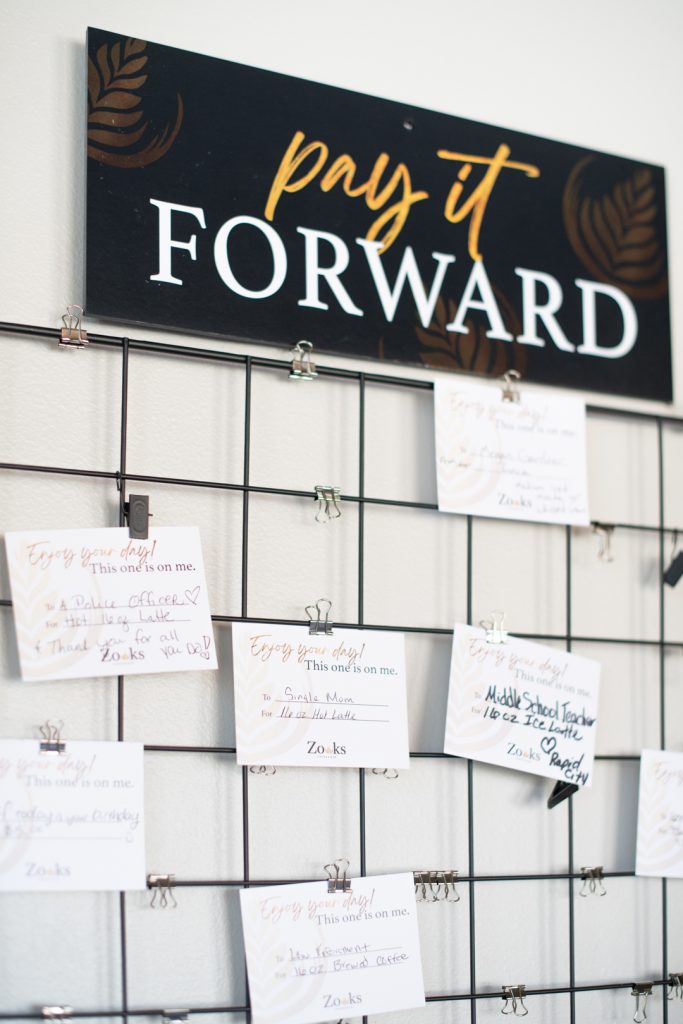 pay it
FORWARD
Enjoy your day!
This one is on me.
To
Zooks
Enjoy your day!
This one is on me.
To A Police Officer
For Hot 16 oz Latte
& Thank you for all
you Do!
Zooks
Enjoy your day!
This one is on me.
To Single Mom
For 16 oz Hot Latte
Zooks
Enjoy your day!
This one is on me.
To Middle School Teacher
For 16 oz Ice Latte
Rapid
City
Zooks
day!
This one is on me.
If today is your Birthday
$5.00
Zooks
Enjoy your day!
This one is on me.
To Law Enforcement
For 16 oz. Brewed Coffee
Zooks